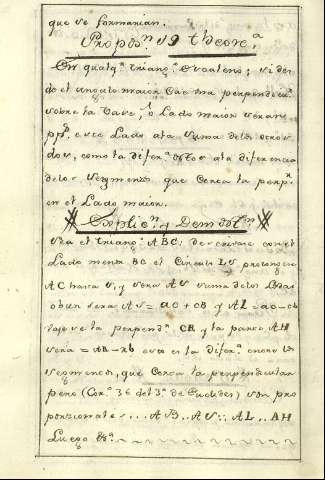 que se formarian.
Propos.ⁿ 59 theore.ª
En qualq.ª triang.º Escaleno; si des
do el angulo maior cae una perpendicu.ʳ
sobre la Base, ó Lado maior seran
pp.ˢ este Lado ala suma delos otros
dos, como la difer.ª destos ala diferencia
delos segmentos que corta la perp.ʳ
en el Lado maior.
Explic.ⁿ y Demost.ⁿ
Sea el triang.º ABC; describase con el
Lado menor BC el Circulo LS prolonguese
AC hasta S, y sera AS suma delos Lados
AS = AC + CB y AL = AC - CB
vajese la perpend.ʳ CR y la parte AH
sera = AR - RB esta es la difer.ª entre los
segmentos, que corta la perpendicular
pero (Cor.º 36 del 3.º de Euclides) son pro
porzionales... AB.. AS:: AL.. AH
Luego &.ª